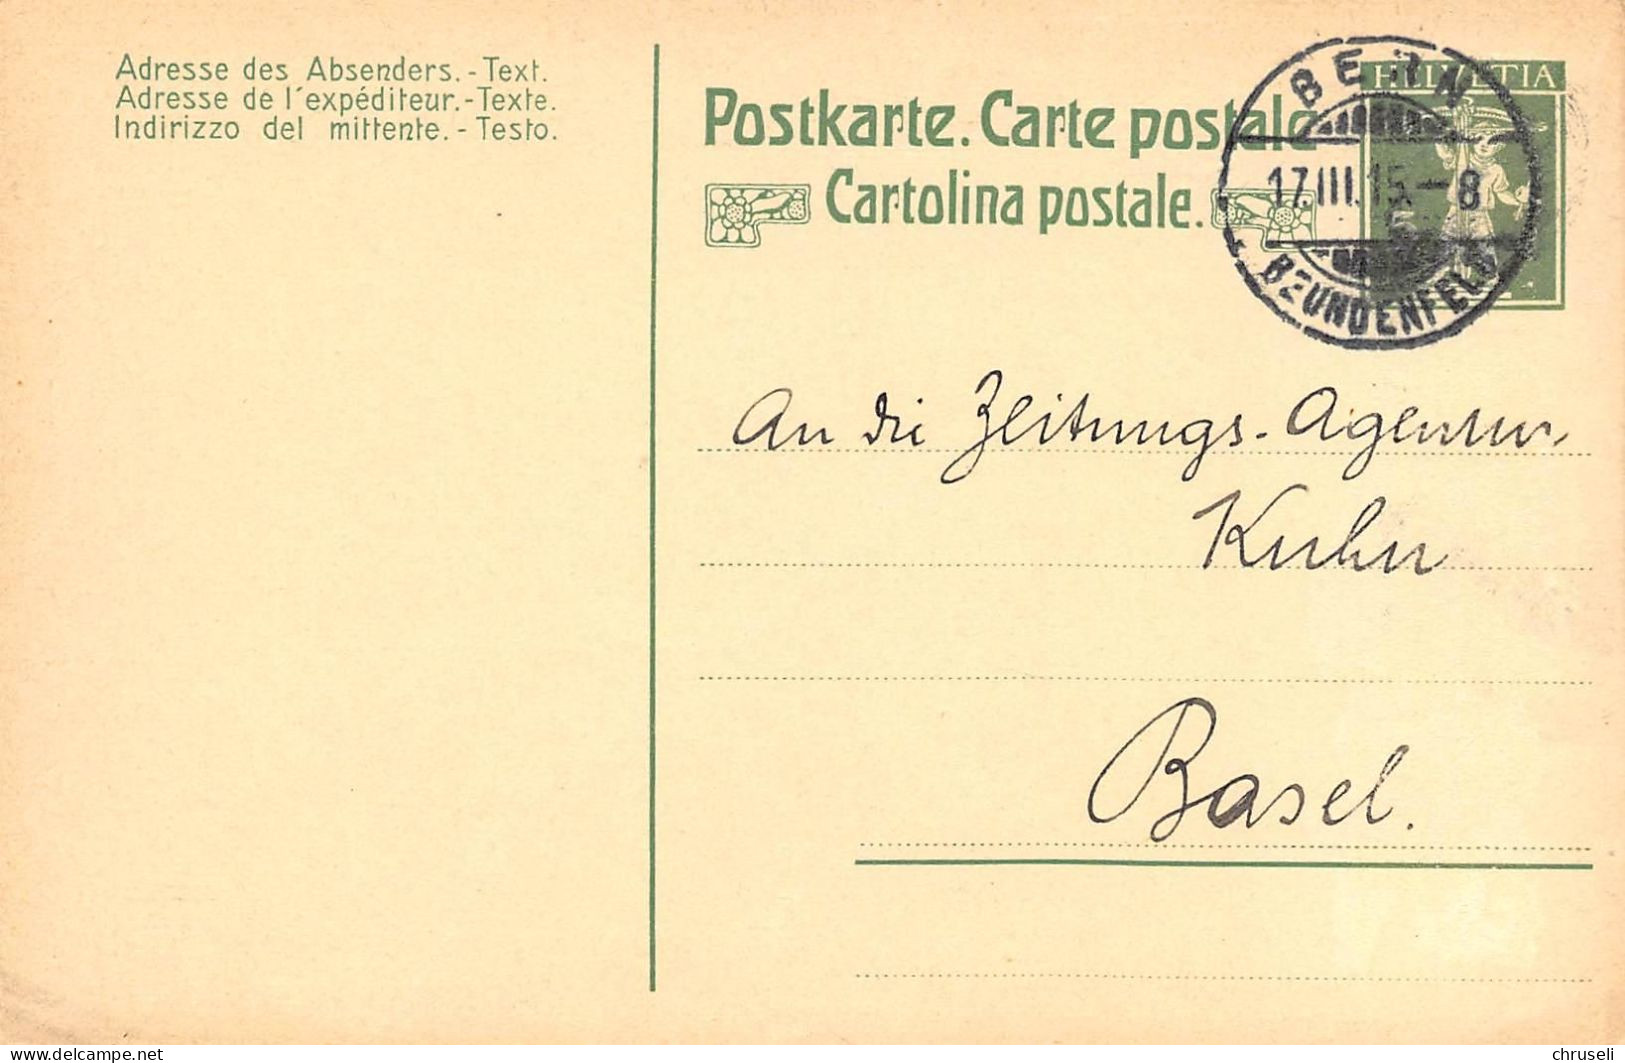 Adresse des Absenders.-Text.
Adresse de l'expéditeur.-Texte.
Indirizzo del mittente.-Testo.
Postkarte. Carte postale
Cartolina postale.
HELVETIA
5
BERN
17.III.15.-8
BEUNDENFELD
An die Zeitungs-Agentur
Kuhn
Basel.
delcampe.net
chruseli